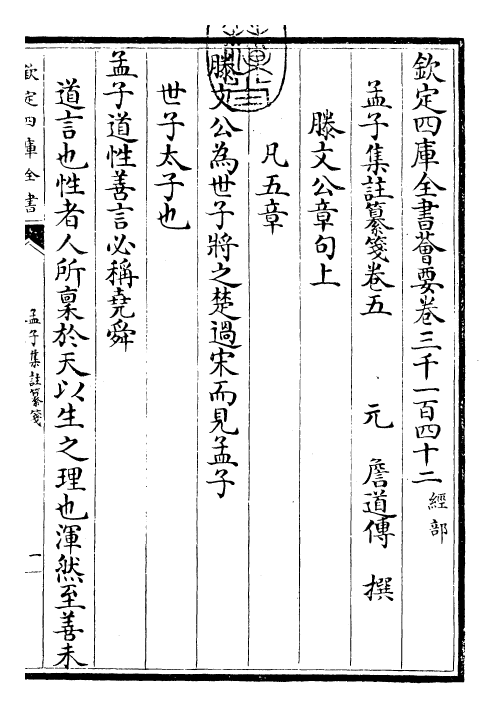 欽定四庫全書薈要卷三千一百四十二 經部
孟子集註纂箋卷五 元 詹道傳 撰
滕文公章句上
凡五章
滕文公為世子將之楚過宋而見孟子
世子太子也
孟子道性善言必稱堯舜
道言也性者人所稟於天以生之理也渾然至善未
欽定四庫全書
孟子集註纂箋
一